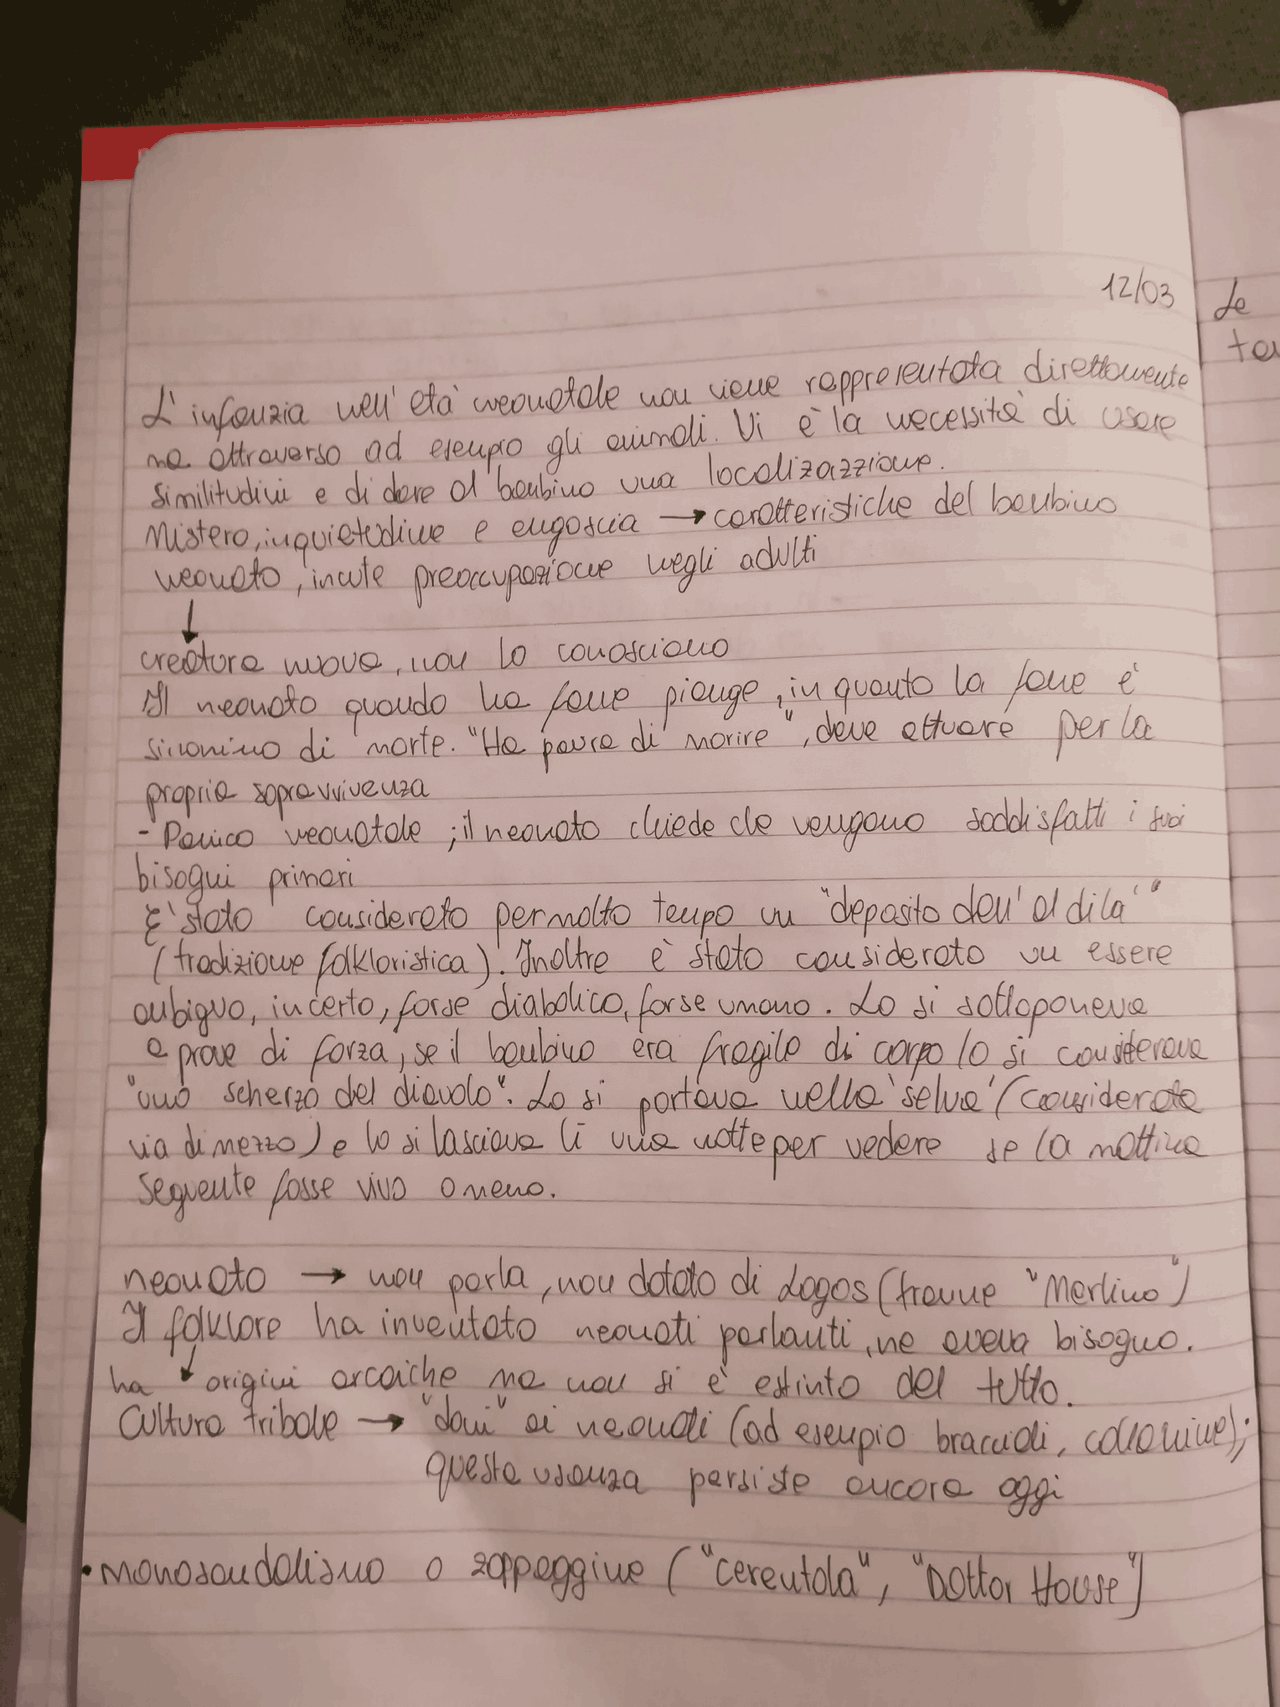 12/03
L'infanzia nell'età neonatale non viene rappresentata direttamente
ma attraverso ad esempio gli animali. Vi è la necessità di usare
similitudini e di dare al bambino una localizazzione.
Mistero, inquietudine e angoscia → caratteristiche del bambino
neonato, incute preoccupazione negli adulti
↓
creatura nuova, non lo conosciamo
Il neonato quando ha fame piange, in quanto la fame è
sinonimo di morte. "Ha paura di morire", deve attuare per la
propria sopravvivenza
- Panico neonatale ; il neonato chiede che vengano soddisfatti i suoi
bisogni primari
E' stato considerato per molto tempo un "deposito dell'al di la'"
(tradizione folkloristica). Inoltre è stato considerato un essere
ambiguo, incerto, forse diabolico, forse umano. Lo si sottoponeva
a prove di forza, se il bambino era fragile di corpo lo si considerava
"uno scherzo del diavolo". Lo si portava nella 'selva' (considerata
via di mezzo) e lo si lasciava lì una notte per vedere se la mattina
seguente fosse vivo o meno.
neonato → non parla, non dotato di Logos (tranne "Merlino")
Il folklore ha inventato neonati parlanti, ne aveva bisogno.
ha ↓ origini arcaiche ma non si è estinto del tutto.
Cultura tribale → "doni" ai neonati (ad esempio bracciali, collanine);
questa usanza persiste ancora oggi
• monosandalismo o zoppeggine ("cerentola", "Dottor House")
Le